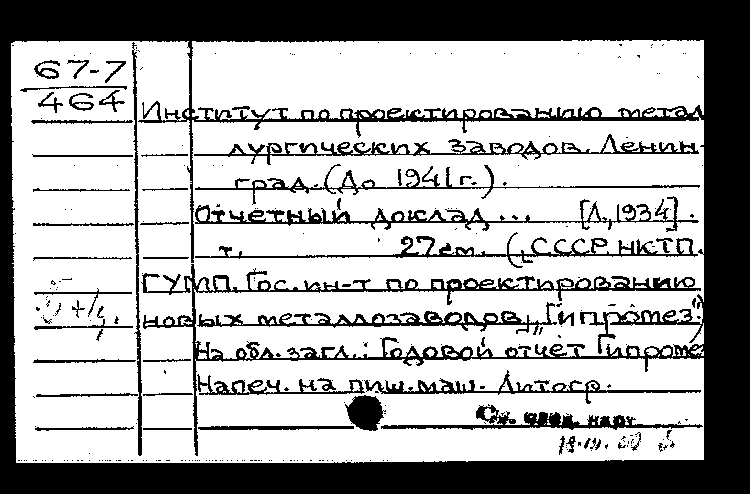 67-7
464
Институт по проектированию метал
лургических заводов. Ленин-
град. (До 1941г.).
Отчетный доклад ... [Л., 1934].
т. 27см. (СССР. НКТП.
ГУМП. Гос. ин-т по проектированию
новых металлозаводов „Гипромез")
На обл. загл.: Годовой отчет Гипромез
Напеч. на пиш. маш. Литогр.
См. след. карт.